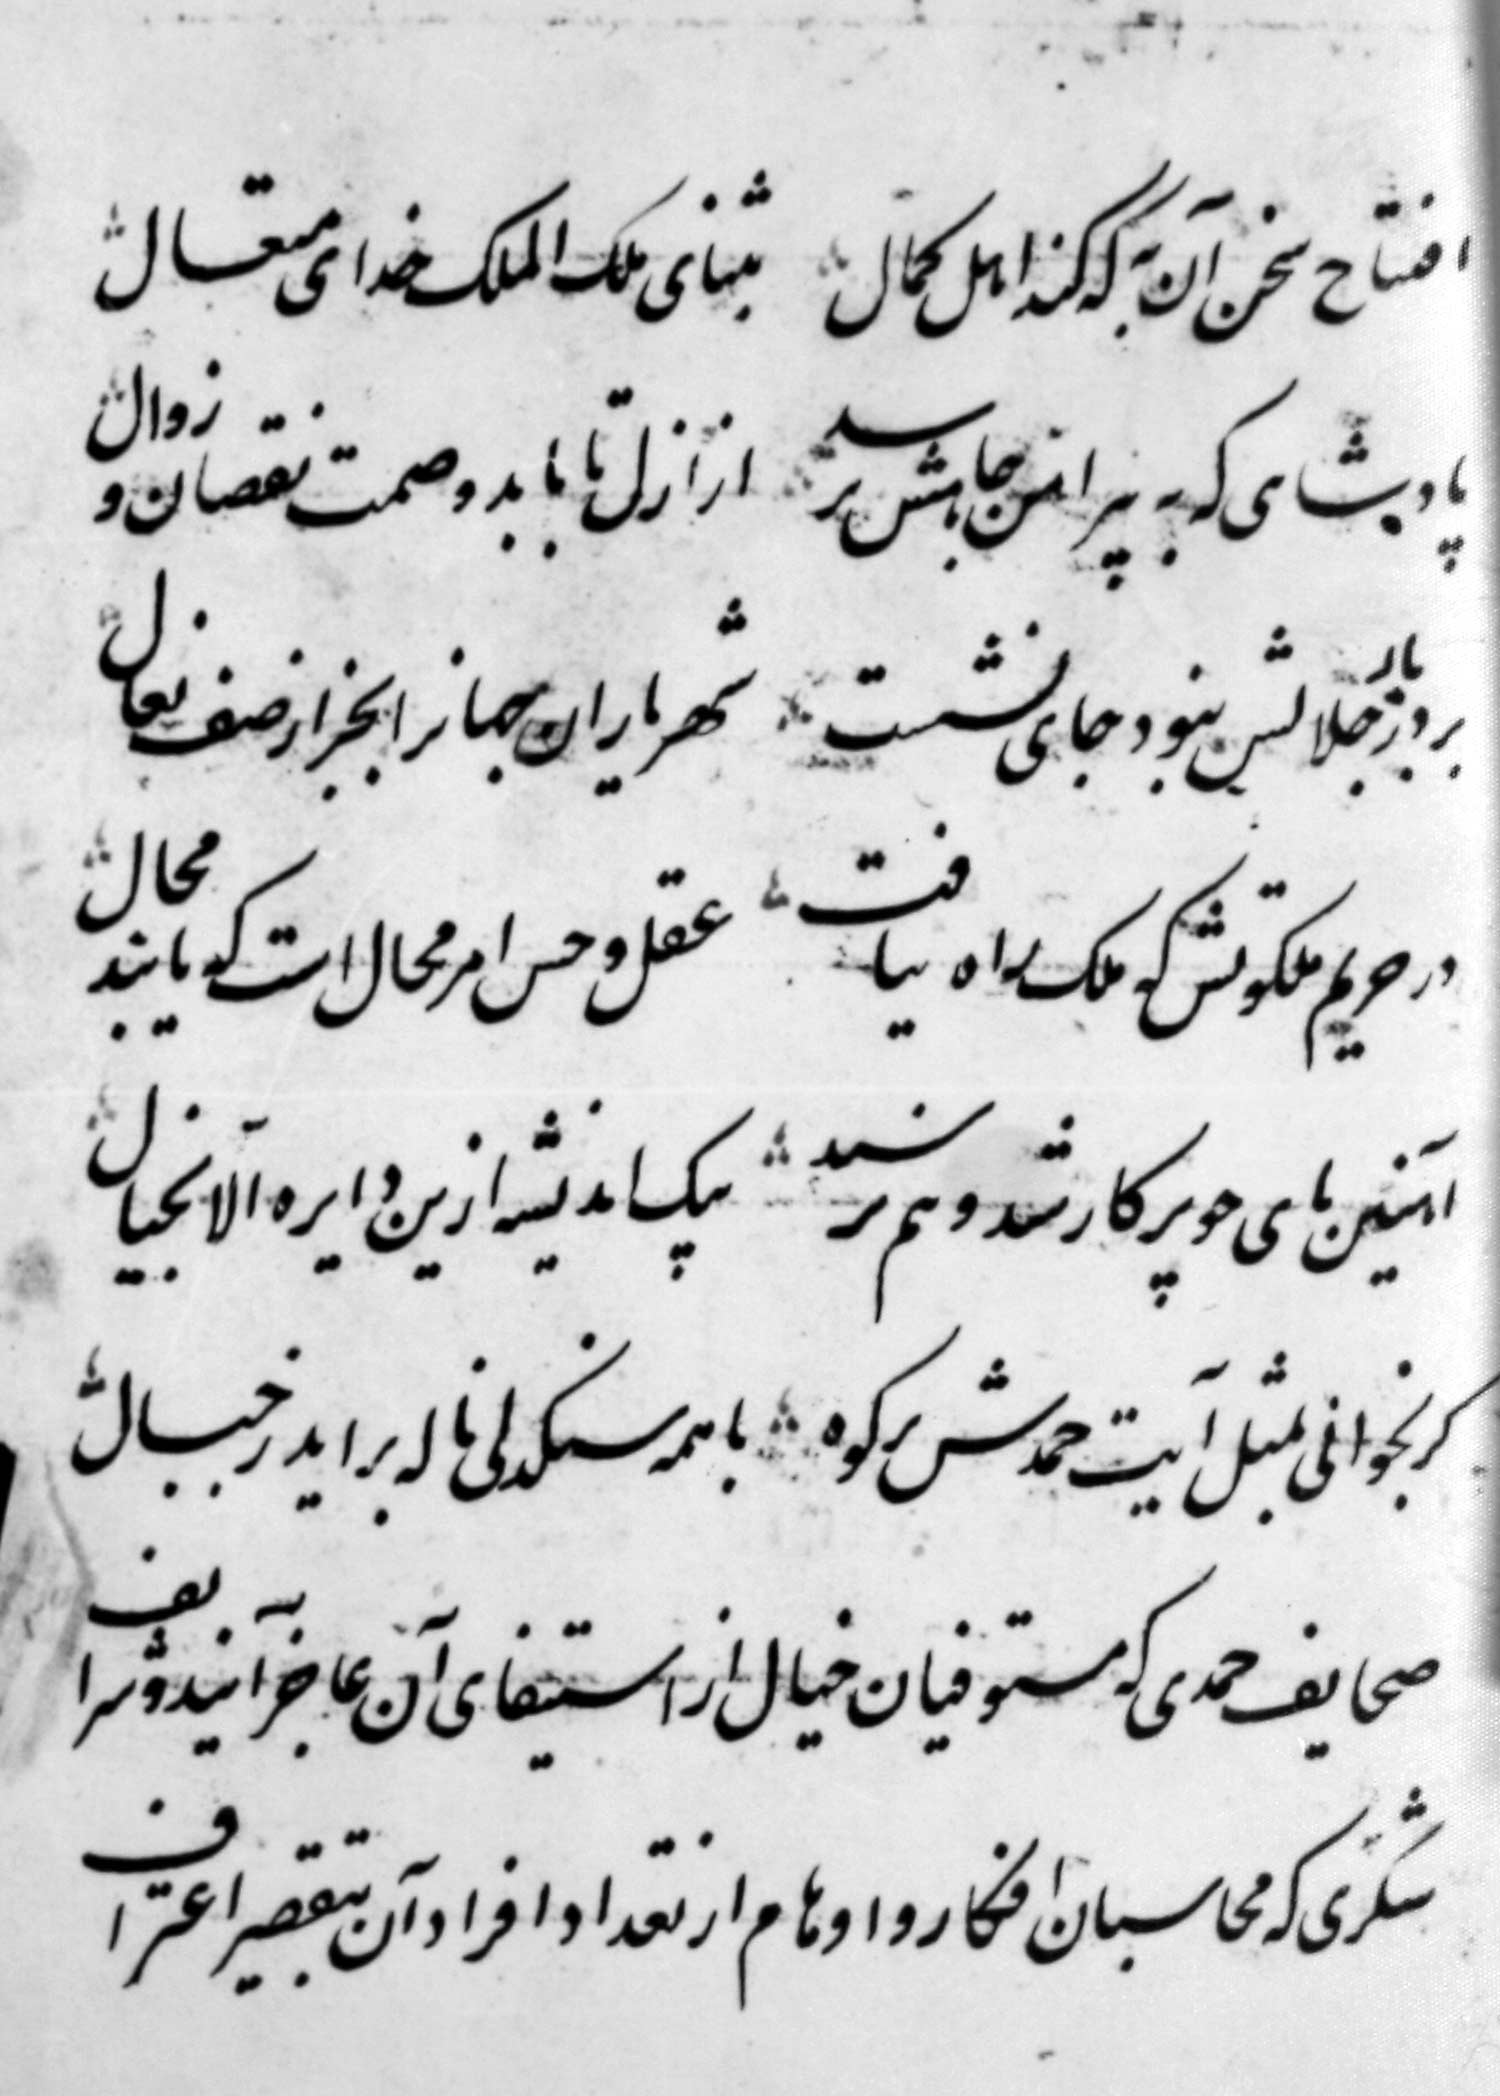 افتتاح سخن آن به که کند اهل کمال بثنای ملک الملک خدای متعال
پادشاهی که به پیرامن جاهش نرسد از ازل تا بابد وصمت نقصان و زوال
بر در بار جلالش نبود جای نشست شهریاران جهانرا بجز از صف نعال
در حریم ملکوتش که ملک راه نیافت عقل و حس امر محال است که یابند محال
آهنین پای چو پرکار شد و هم نرسید پیک اندیشه ازین دایره الا بخیال
کر بخوانی بمثل آیت حمدش بر کوه با همه سنکدلی ناله براید ز جبال
صحایف حمدی که مستوفیان خیال از استیفای آن عاجز آیند و شرایف
شکری که محاسبان افکار و اوهام از تعداد افراد آن بتقصیر اعتراف